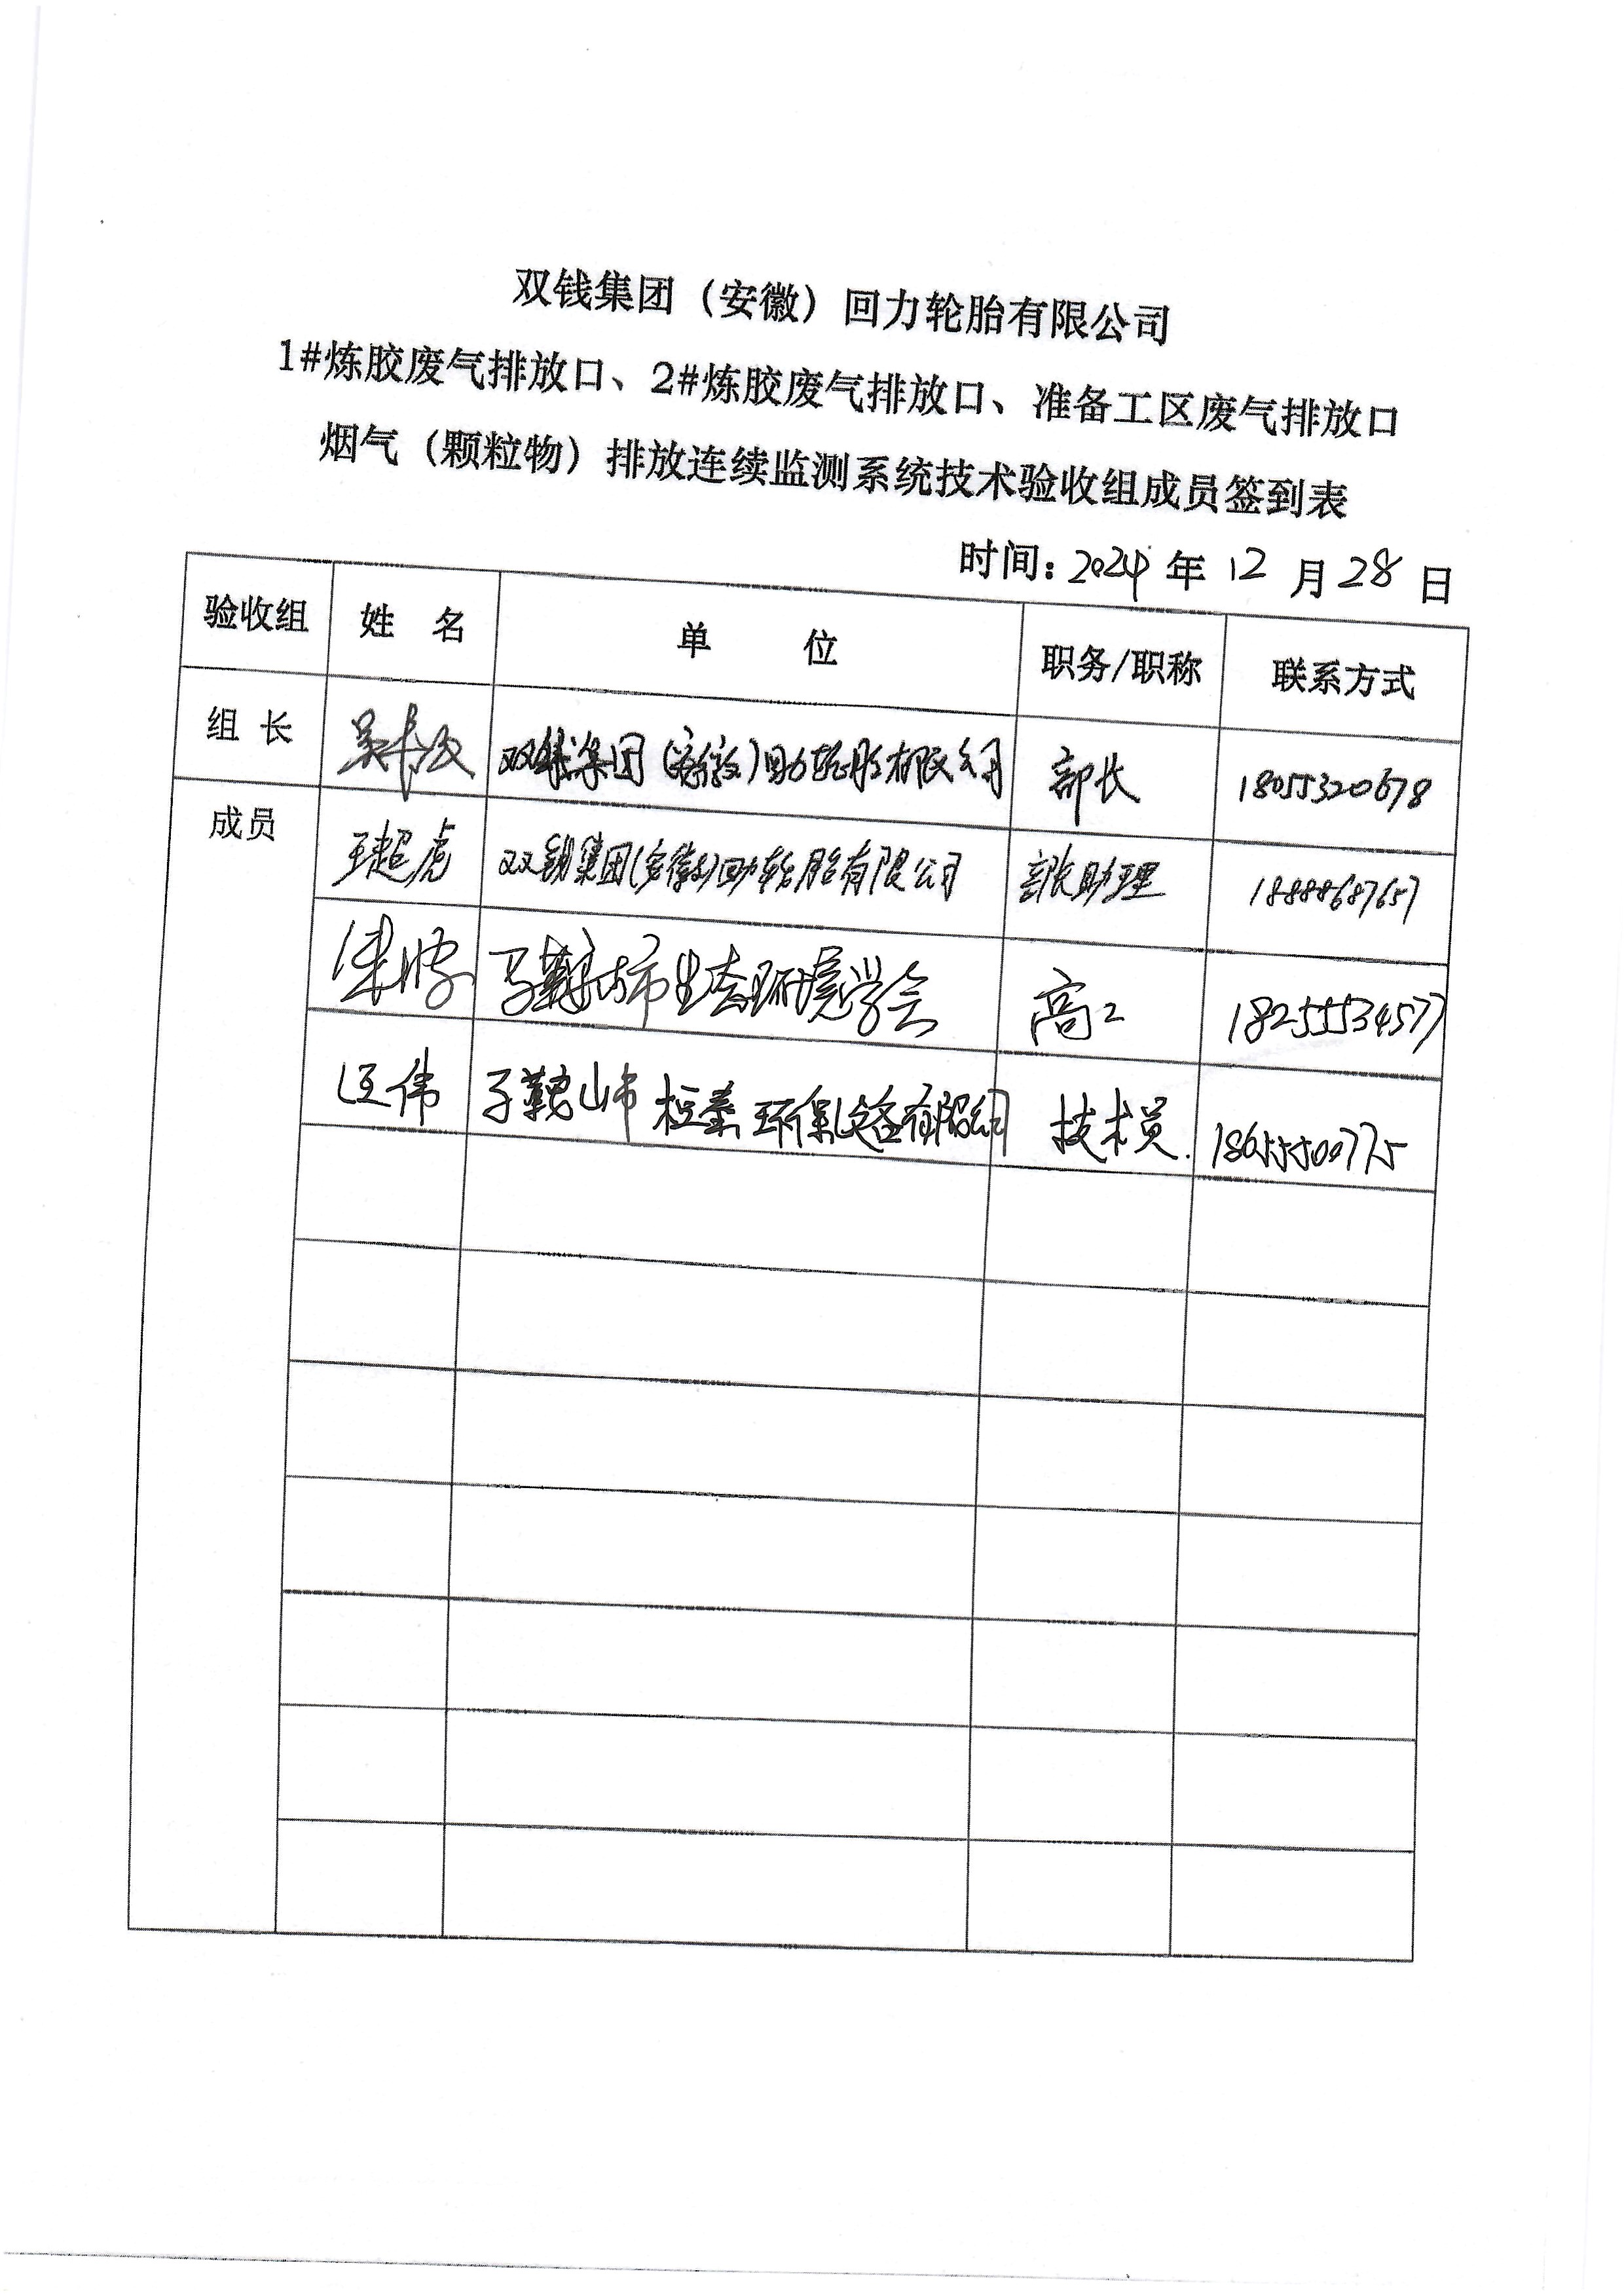 双钱集团（安徽）回力轮胎有限公司
1#炼胶废气排放口、2#炼胶废气排放口、准备工区废气排放口
烟气（颗粒物）排放连续监测系统技术验收组成员签到表
时间：2024 年 12 月 28 日
验收组 姓 名 单 位 职务/职称 联系方式
组 长 双钱集团（安徽）回力轮胎有限公司 部长 18055320678
成员 王超虎 双钱集团（安徽）回力轮胎有限公司 部长助理 18888687657
马鞍山市生态环境学会 高工 18255534577
汪伟 马鞍山市 环保设备有限公司 技术员. 18655500775